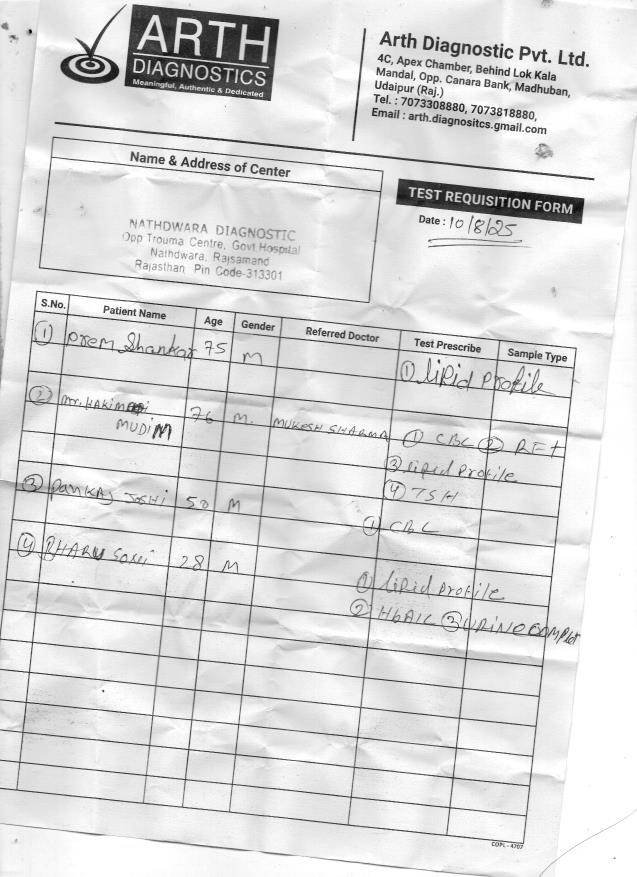 ARTH
DIAGNOSTICS
Meaningful, Authentic & Dedicated
Arth Diagnostic Pvt. Ltd.
4C, Apex Chamber, Behind Lok Kala
Mandal, Opp. Canara Bank, Madhuban,
Udaipur (Raj.)
Tel. : 7073308880, 7073818880,
Email : arth.diagnositcs.gmail.com
Name & Address of Center
NATHDWARA DIAGNOSTIC
Opp Trouma Centre, Govt Hospital
Nathdwara, Rajsamand
Rajasthan Pin Code-313301
TEST REQUISITION FORM
Date : 10/8/25
S.No. Patient Name Age Gender Referred Doctor Test Prescribe Sample Type
1 Prem Shankar 75 M 1 Lipid Profile
2 Mr. HAKIM 76 M. MUKESH SHARMA 1 CBC 2 RFT
MUDIM
3 Lipid Profile
4 TSH
3 Pankaj Joshi 50 M
1 CBC
4 SONI 28 M
1 Lipid Profile
2 HbA1C 3 URINE COMPLET
COPL - 4707